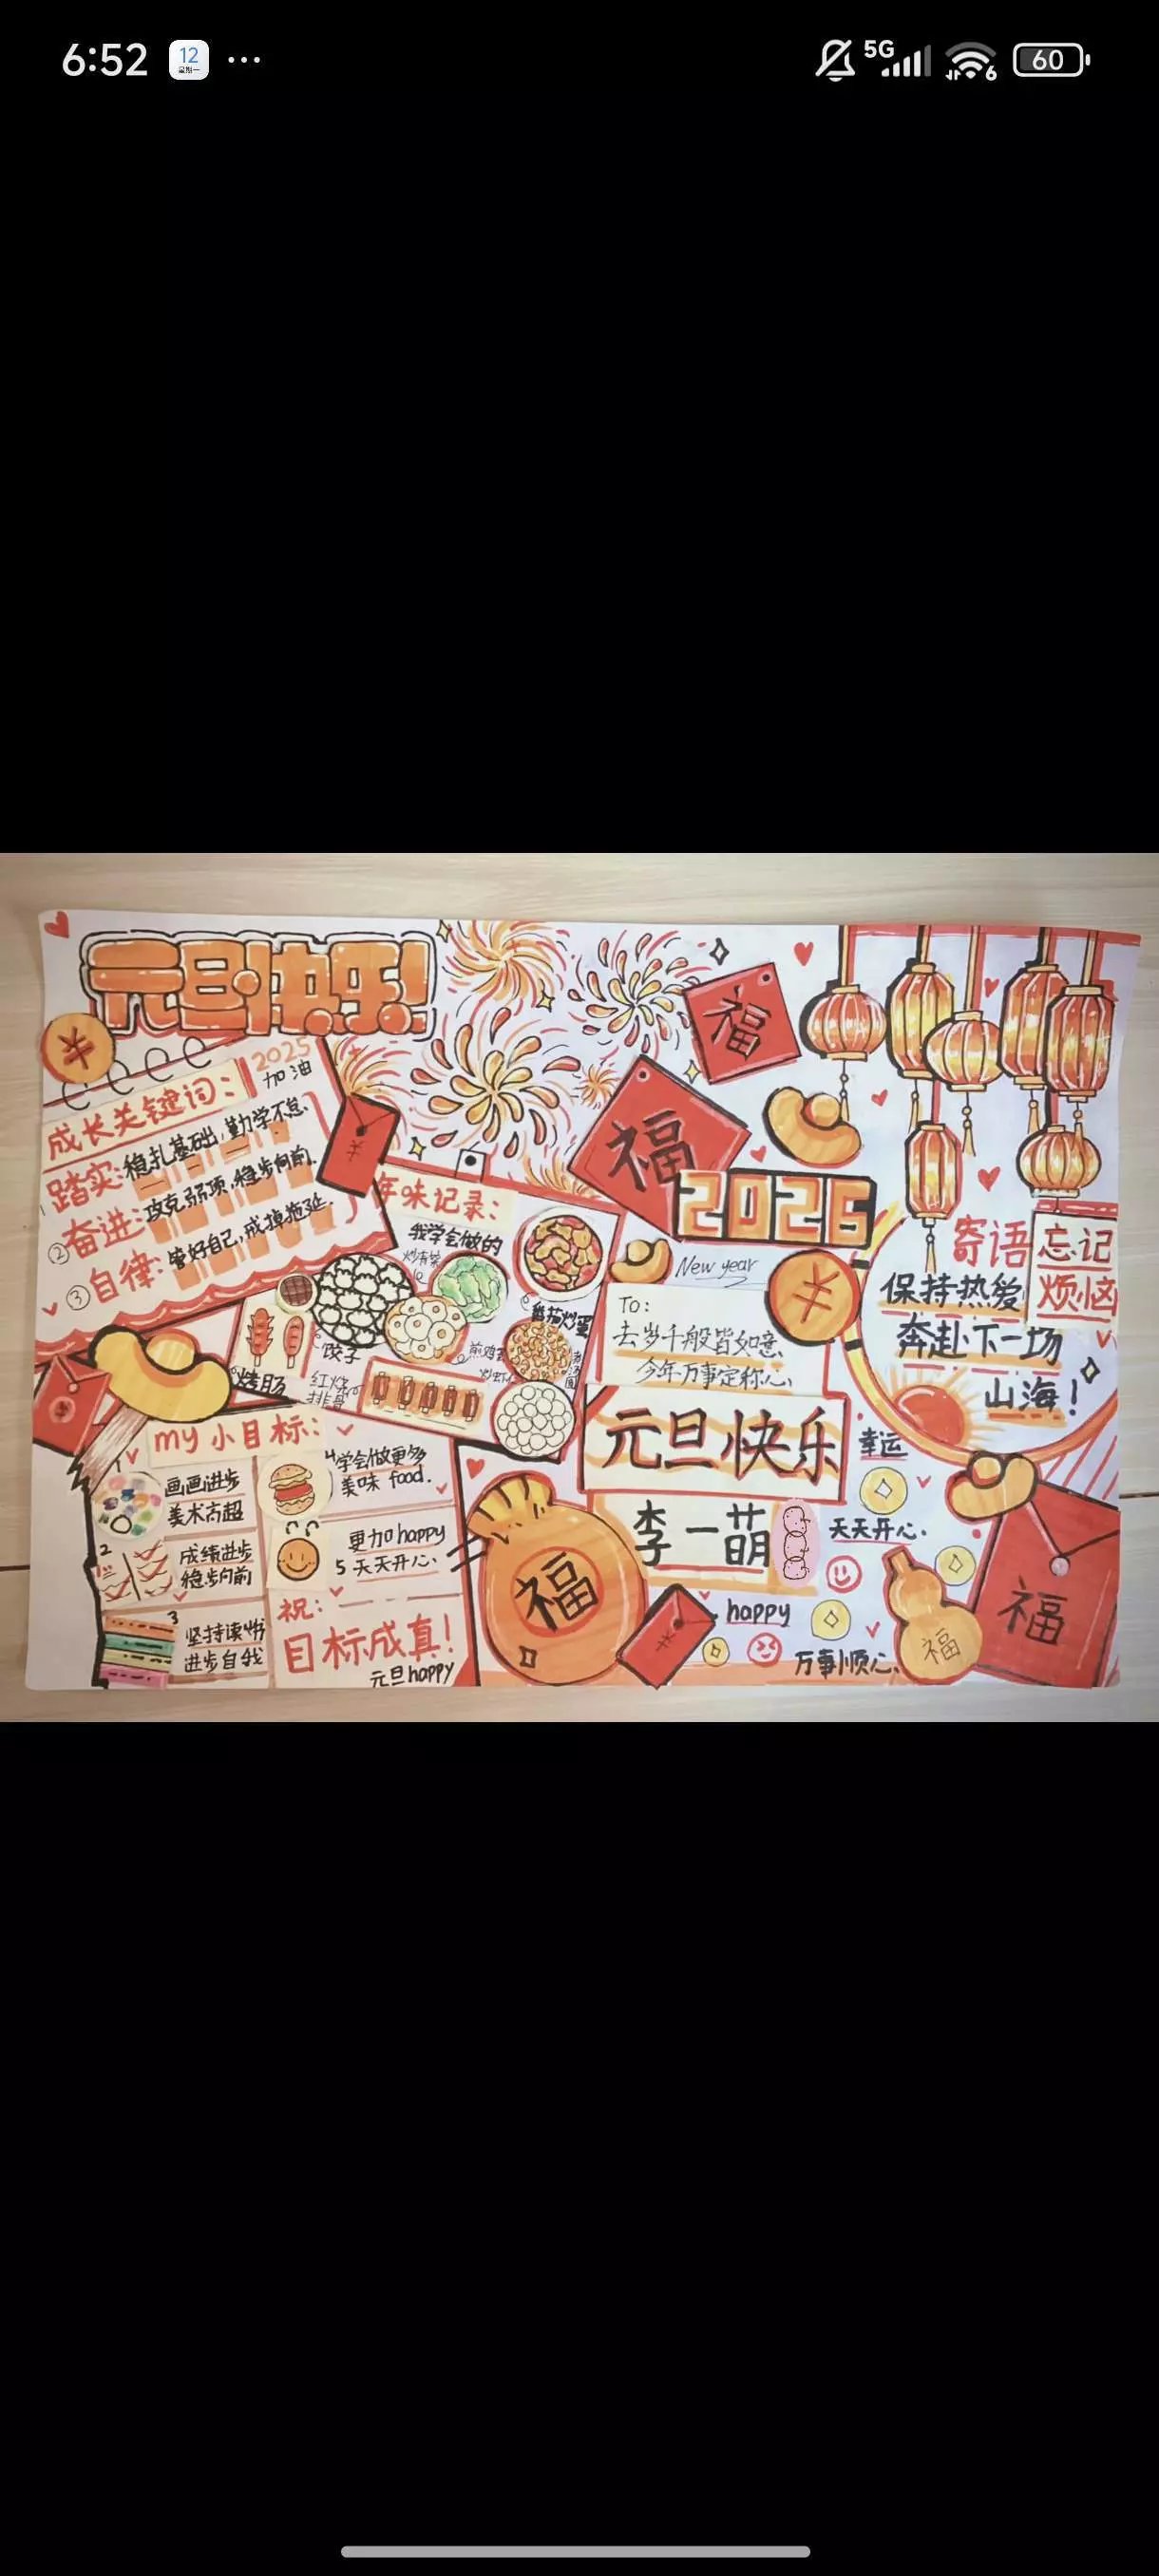 6:52
12
星期一
5G
6
60
元旦快乐!
福
2025
加油
成长关键词:
踏实:稳扎基础,勤学不怠.
②奋进:攻克弱项,稳步向前.
③自律:管好自己,戒掉拖延.
福
年味记录:
我学会做的
炒青菜
番茄炒蛋
饺子
煎鸡蛋
烤肠
红烧
排骨
2026
New year
To:
去岁千般皆如意
今年万事定称心
元旦快乐
李一萌
寄语
忘记
烦恼
保持热爱
奔赴下一场
山海!
my 小目标:
1
画画进步
美术高超
2
成绩进步
稳步向前
3
坚持读书
进步自我
4学会做更多
美味 food.
更加happy
5 天天开心.
祝:
目标成真!
元旦happy
福
幸运
天天开心.
happy
万事顺心
福
福